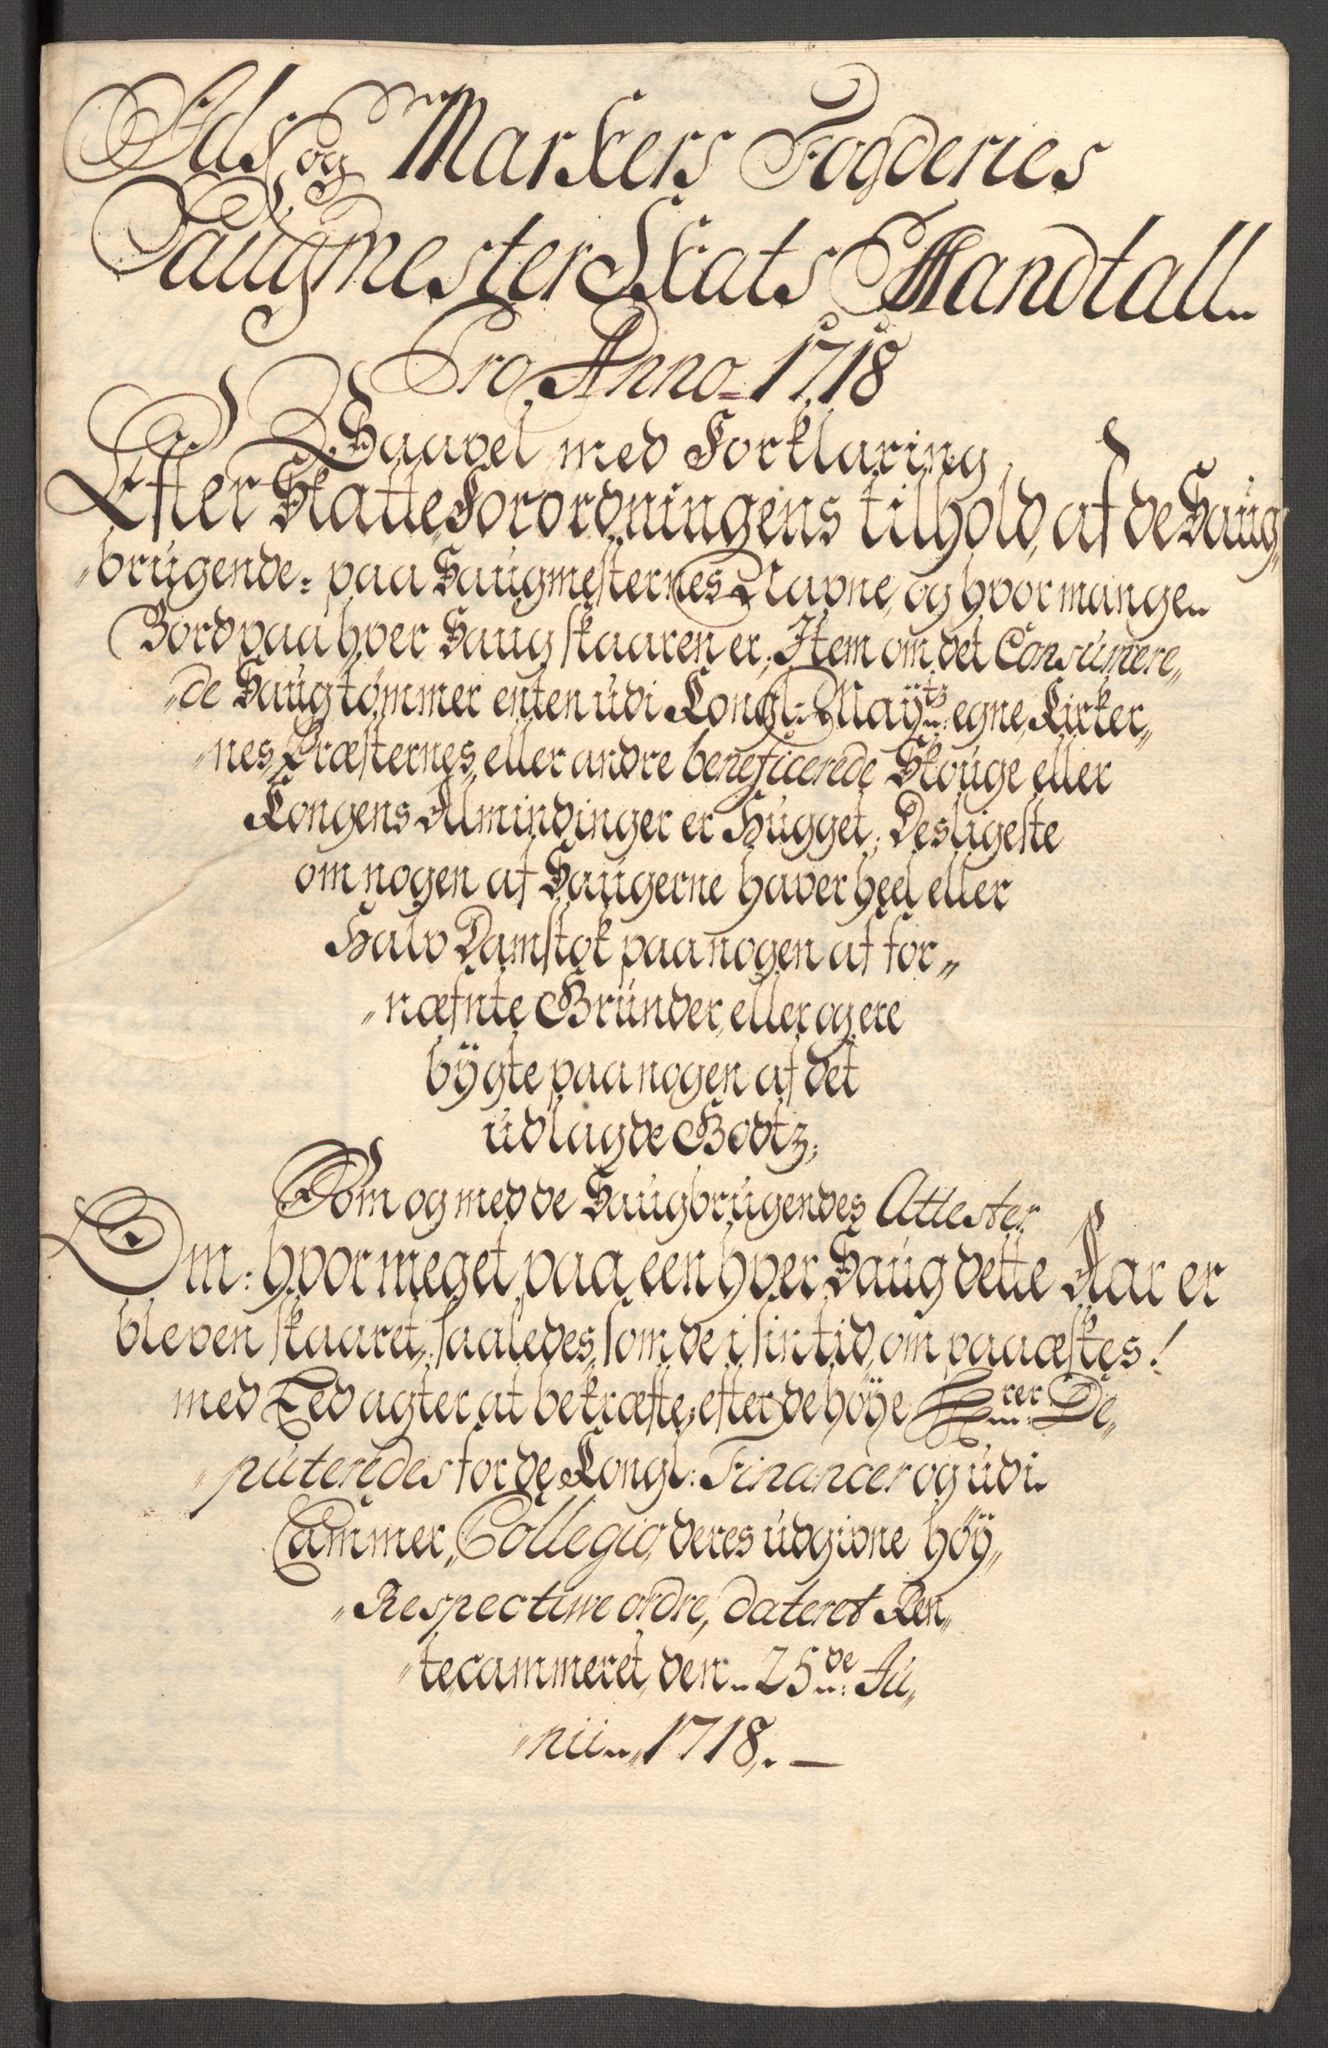 Ids og Markers Fogderies
Saugmester Skats Mandtall
Pro Anno 1718
Saavel med Forklaring
Efter Skatte Forordningens tilhold, af de Saug„
„brugende: paa Saugmesternes Navne, og hvor mange
Bord paa hver Saug skaaren er, Item om det Consumere„
„de Saugtømmer enten udi Kongl: Maÿtz egne, Kirker„
„nes, Præsternes, eller andre beneficerede Skouge eller
Kongens Almindinger er Hugget, Desligeste
om nogen af Saugerne haver heel eller
Halv Damstok paa nogen af for„
„næfnte Grunder, eller og ere
bÿgte paa nogen af det
udlagde Godtz,
Som og med de Saugbrugendes Attester
Om: hvor meget paa een hver Saug dette Aar er
bleven skaaret, saaledes, som de i sin tid, om paaæskes!
med Eed agter at bekræfte, efter de høÿe Hrrer De„
„puteredes for de Kongl: Financer og udi
Cammer„ Collegio, deres udgivne høÿ„
„Respective ordre, dateret Ren„
„tecammeret, den 25de Ju„
„nii 1718.